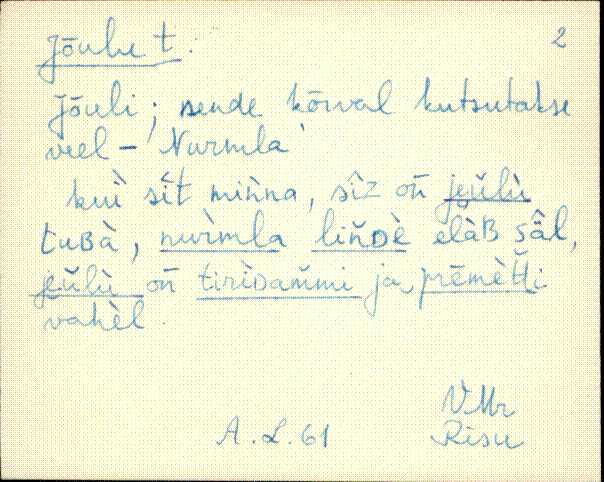 Jõulu t. 2
Jõuli; nende kõrval kutsutakse
veel – 'Nurmla'
kuì sît miǹna, sîz oñ jeŭlù
tuʙà, nurìmla liňᴅè elàʙ sâl,
jeŭlù oñ tiriᴅam̆mi ja prēmèt̆ti
vahèl.
VMr
A.L. 61 Risu